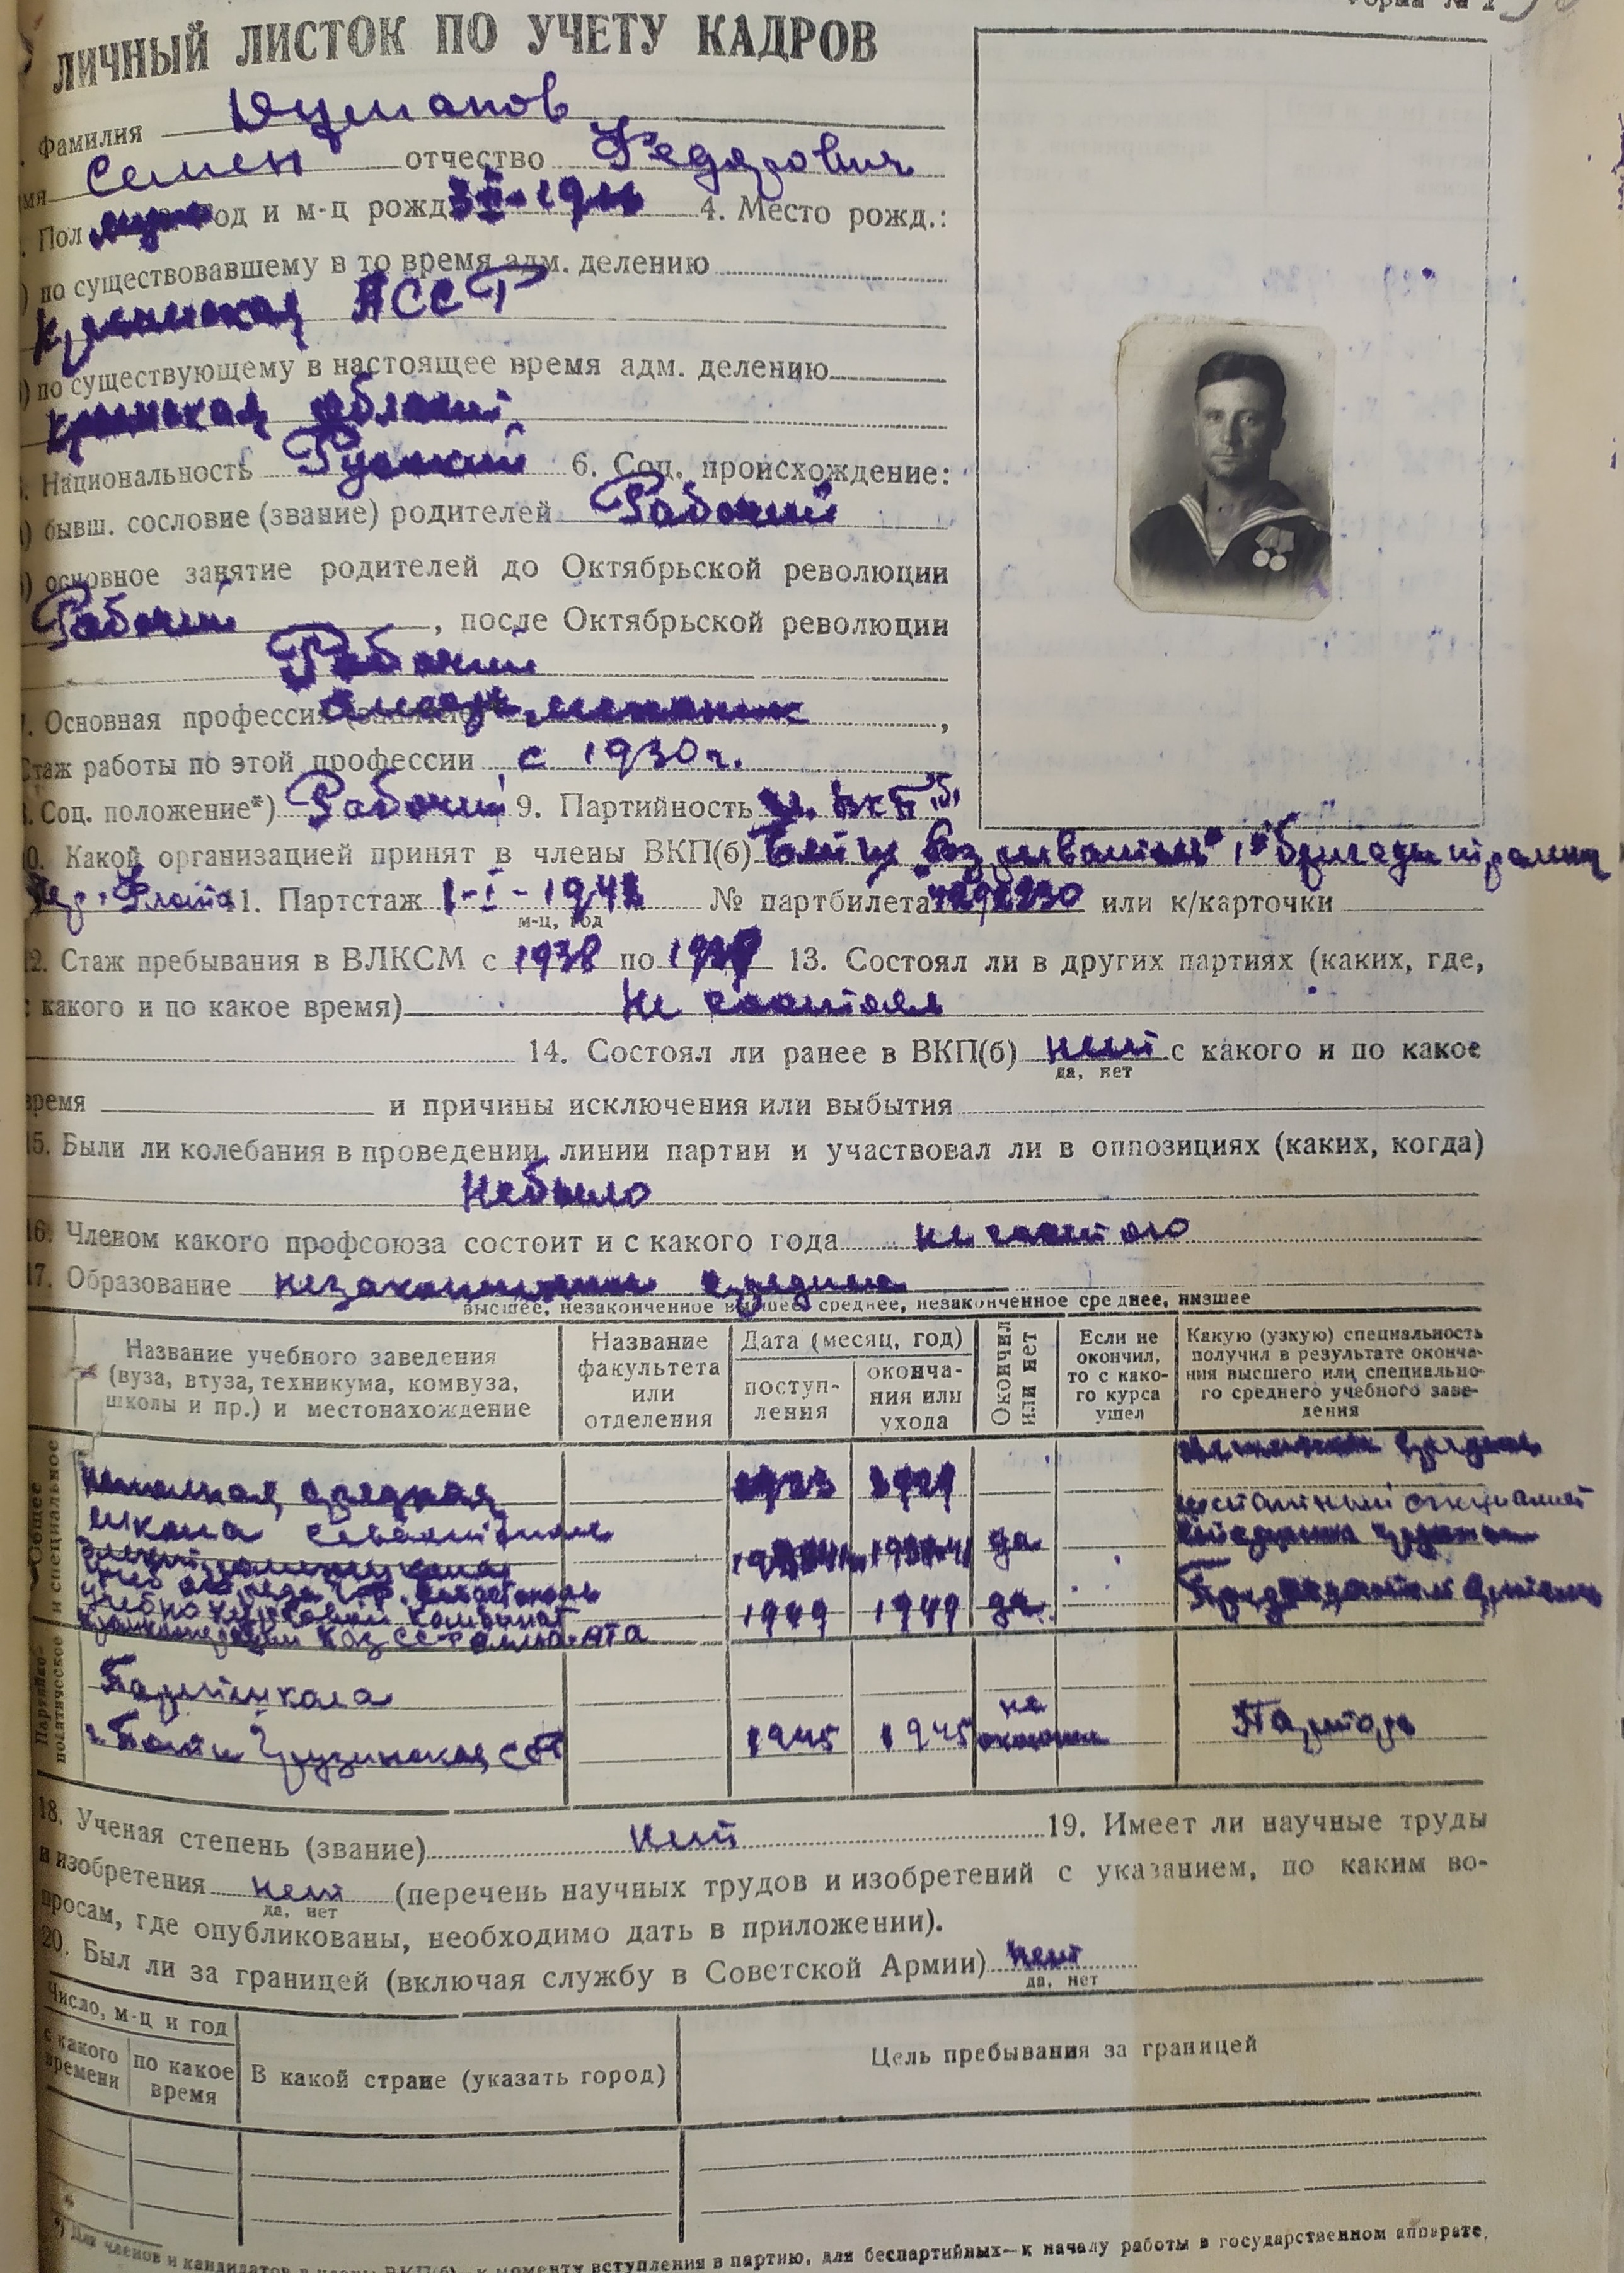 ЛИЧНЫЙ ЛИСТОК ПО УЧЕТУ КАДРОВ
Фамилия Думанов
Семен отчество Федорович
Пол муж од и м-ц рожд. 4. Место рожд.:
по существовавшему в то время адм. делению
Крымская АССР
по существующему в настоящее время адм. делению
Крымская область
Национальность Русский 6. Соц. происхождение:
бывш. сословие (звание) родителей Рабочий
основное занятие родителей до Октябрьской революции
Рабочий, после Октябрьской революции
Рабочий
Основная профессия механик,
стаж работы по этой профессии с 1930 г.
Соц. положение*) Рабочий 9. Партийность чл. ВКП(б)
10. Какой организацией принят в члены ВКП(б) "Бригады
Чер. Флота 11. Партстаж 1-I-1942 № партбилета или к/карточки
м-ц, год
12. Стаж пребывания в ВЛКСМ с 1938 по 13. Состоял ли в других партиях (каких, где,
с какого и по какое время) Не состоял
14. Состоял ли ранее в ВКП(б) нет с какого и по какое
да, нет
время и причины исключения или выбытия
15. Были ли колебания в проведении линии партии и участвовал ли в оппозициях (каких, когда)
Небыло
16. Членом какого профсоюза состоит и с какого года не состою
17. Образование незаконченное среднее
высшее, незаконченное высшее, среднее, незаконченное среднее, низшее
Общее и специальное
Название учебного заведения (вуза, втуза, техникума, комвуза, школы и пр.) и местонахождение
Название факультета или отделения
Дата (месяц, год)
поступления
окончания или ухода
Окончил или нет
Если не окончил, то с какого курса ушел
Какую (узкую) специальность получил в результате окончания высшего или специального среднего учебного заведения
Неполная средняя
школа Севастополь
да
учебно курсовой комбинат
Каз ССР Алма-Ата 1949 1949 да Председатель артели
Партийно-политическое
Партшкола
г. Поти Грузинская ССР 1945 1945 не окончил Парторг
18. Ученая степень (звание) Нет 19. Имеет ли научные труды
и изобретения нет (перечень научных трудов и изобретений с указанием, по каким во-
да, нет
просам, где опубликованы, необходимо дать в приложении).
20. Был ли за границей (включая службу в Советской Армии) Нет
да, нет
Число, м-ц и год
с какого времени
по какое время
В какой стране (указать город)
Цель пребывания за границей
*) Для членов и кандидатов в к моменту вступления в партию, для беспартийных—к началу работы в государственном аппарате,